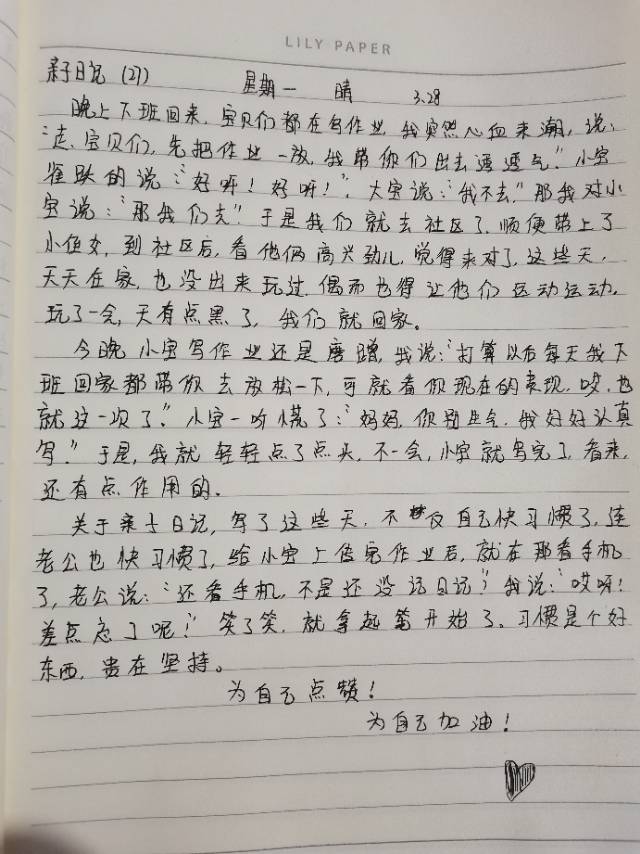 LILY PAPER
亲子日记(27) 星期一 晴 3.28
晚上下班回来,宝贝们都在写作业,我突然心血来潮,说:
“走,宝贝们,先把作业一放,我带你们出去透透气”小宝
雀跃的说:“好呀!好呀!”,大宝说:“我不去,”那我对小
宝说:“那我们去”于是我们就去社区了,顺便带上了
小侄女,到社区后,看他俩高兴劲儿,觉得来对了,这些天,
天天在家,也没出来玩过,偶而也得让他们运动运动,
玩了一会,天有点黑了,我们就回家。
今晚小宝写作业还是磨蹭,我说:“打算以后每天我下
班回家都带你去放松一下,可就看你现在的表现,哎,也
就这一次了”小宝一听慌了:“妈妈,你别生气,我好好认真
写”于是,我就轻轻点了点头,不一会,小宝就写完了,看来,
还有点作用的。
关于亲子日记,写了这些天,不仅自己快习惯了,连
老公也快习惯了,给小宝上传完作业后,就在那看手机
了,老公说:“还看手机,不是还没记日记”我说:“哎呀!
差点忘了呢!”笑了笑,就拿起笔开始了。习惯是个好
东西,贵在坚持。
为自己点赞!
为自己加油!